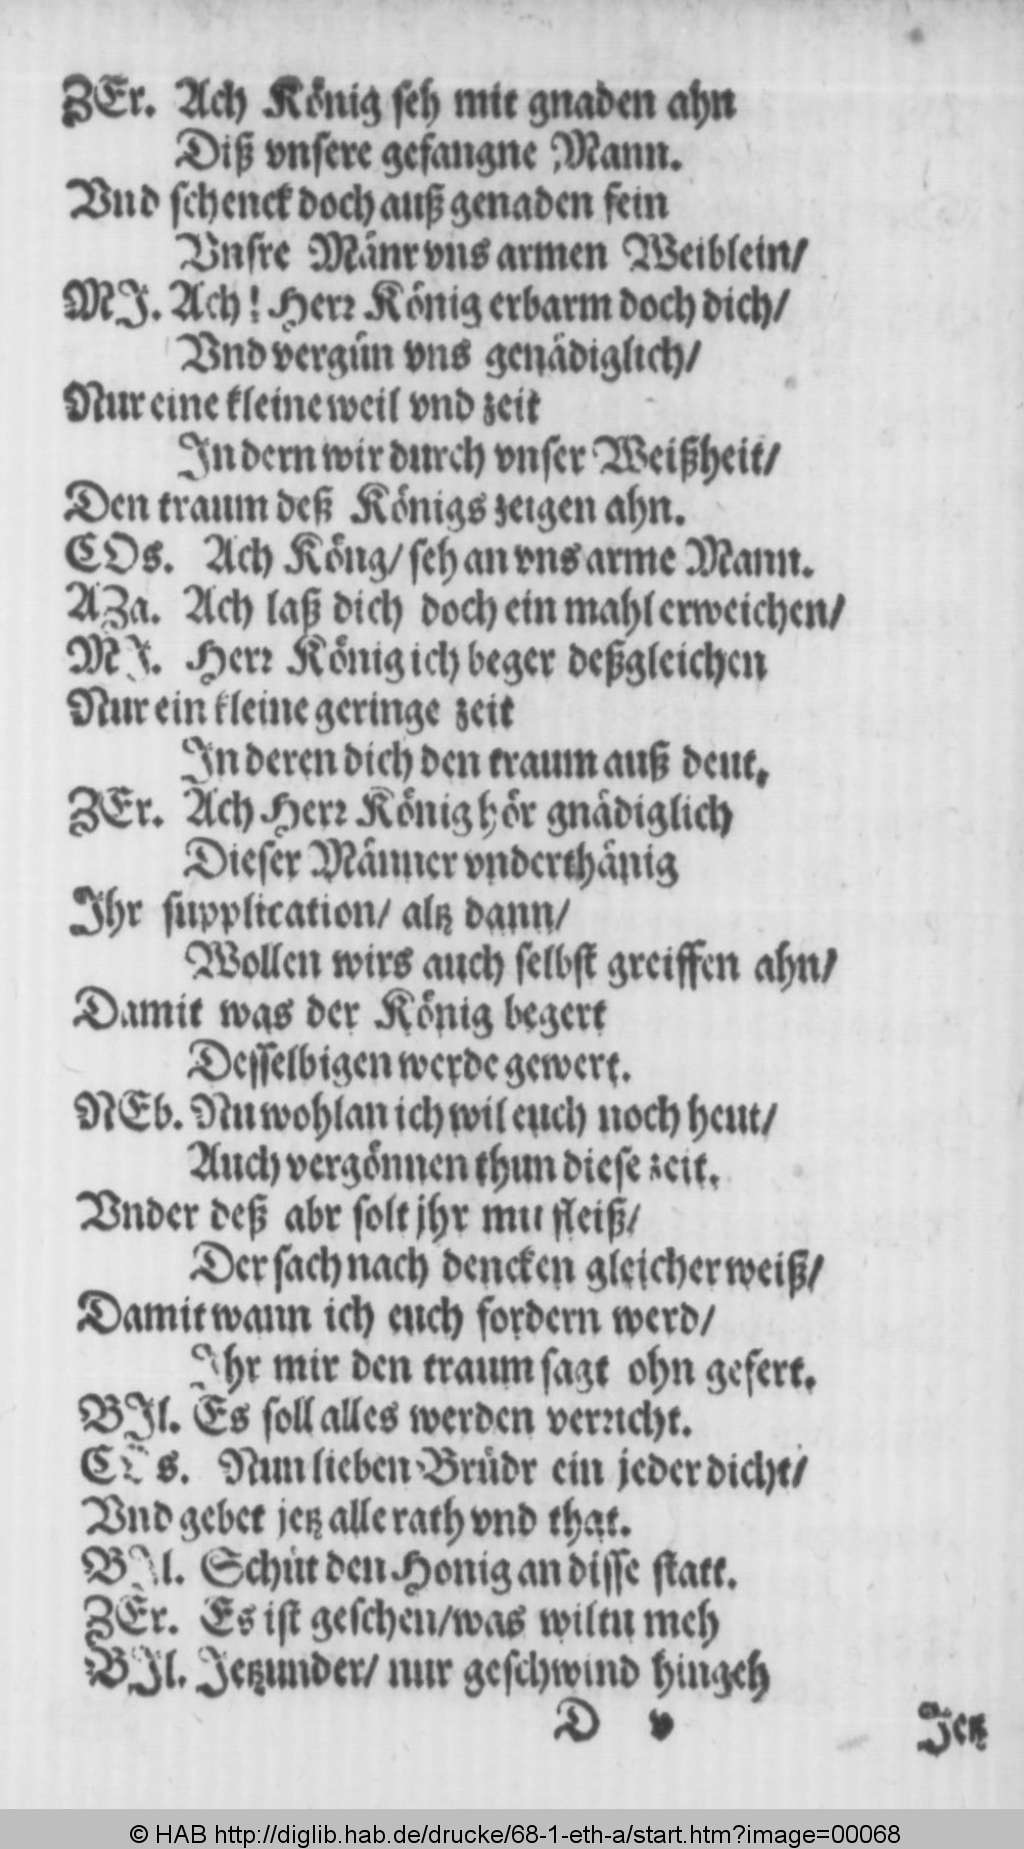 ZEr. Ach König seh mit gnaden ahn
Diß vnsere gefangne Mann.
Vnd schenck doch auß genaden fein
Vnsre Mänr vns armen Weiblein/
MJ. Ach! Herr König erbarm doch dich/
Vnd vergün vns genädiglich/
Nur eine kleine weil vnd zeit
Jn dern wir durch vnser Weißheit/
Den traum deß Königs zeigen ahn.
COs. Ach Köng/ seh an vns arme Mann.
AZa. Ach laß dich doch ein mahl erweichen/
MJ. Herr König ich beger deßgleichen
Nur ein kleine geringe zeit
Jn deren dich den traum auß deut.
ZEr. Ach Herr König hör gnädiglich
Dieser Männer vnderthänig
Jhr supplication/ altz dann/
Wollen wirs auch selbst greiffen ahn/
Damit was der König begert
Desselbigen werde gewert.
NEb. Nu wohlan ich wil euch noch heut/
Auch vergönnen thun diese zeit.
Vnder deß abr solt jhr mit fleiß/
Der sach nach dencken gleicher weiß/
Damit wann ich euch fordern werd/
Jhr mir den traum sagt ohn gefert.
BJl. Es soll alles werden verricht.
COs. Nun lieben Brüdr ein jeder dicht/
Vnd gebet jetz alle rath vnd that.
BJl. Schüt den Honig an disse statt.
ZEr. Es ist geschen/ was wiltu meh
BJl. Jetzunder/ nur geschwind hingeh
D v
Jetz
© HAB http://diglib.hab.de/drucke/68-1-eth-a/start.htm?image=00068